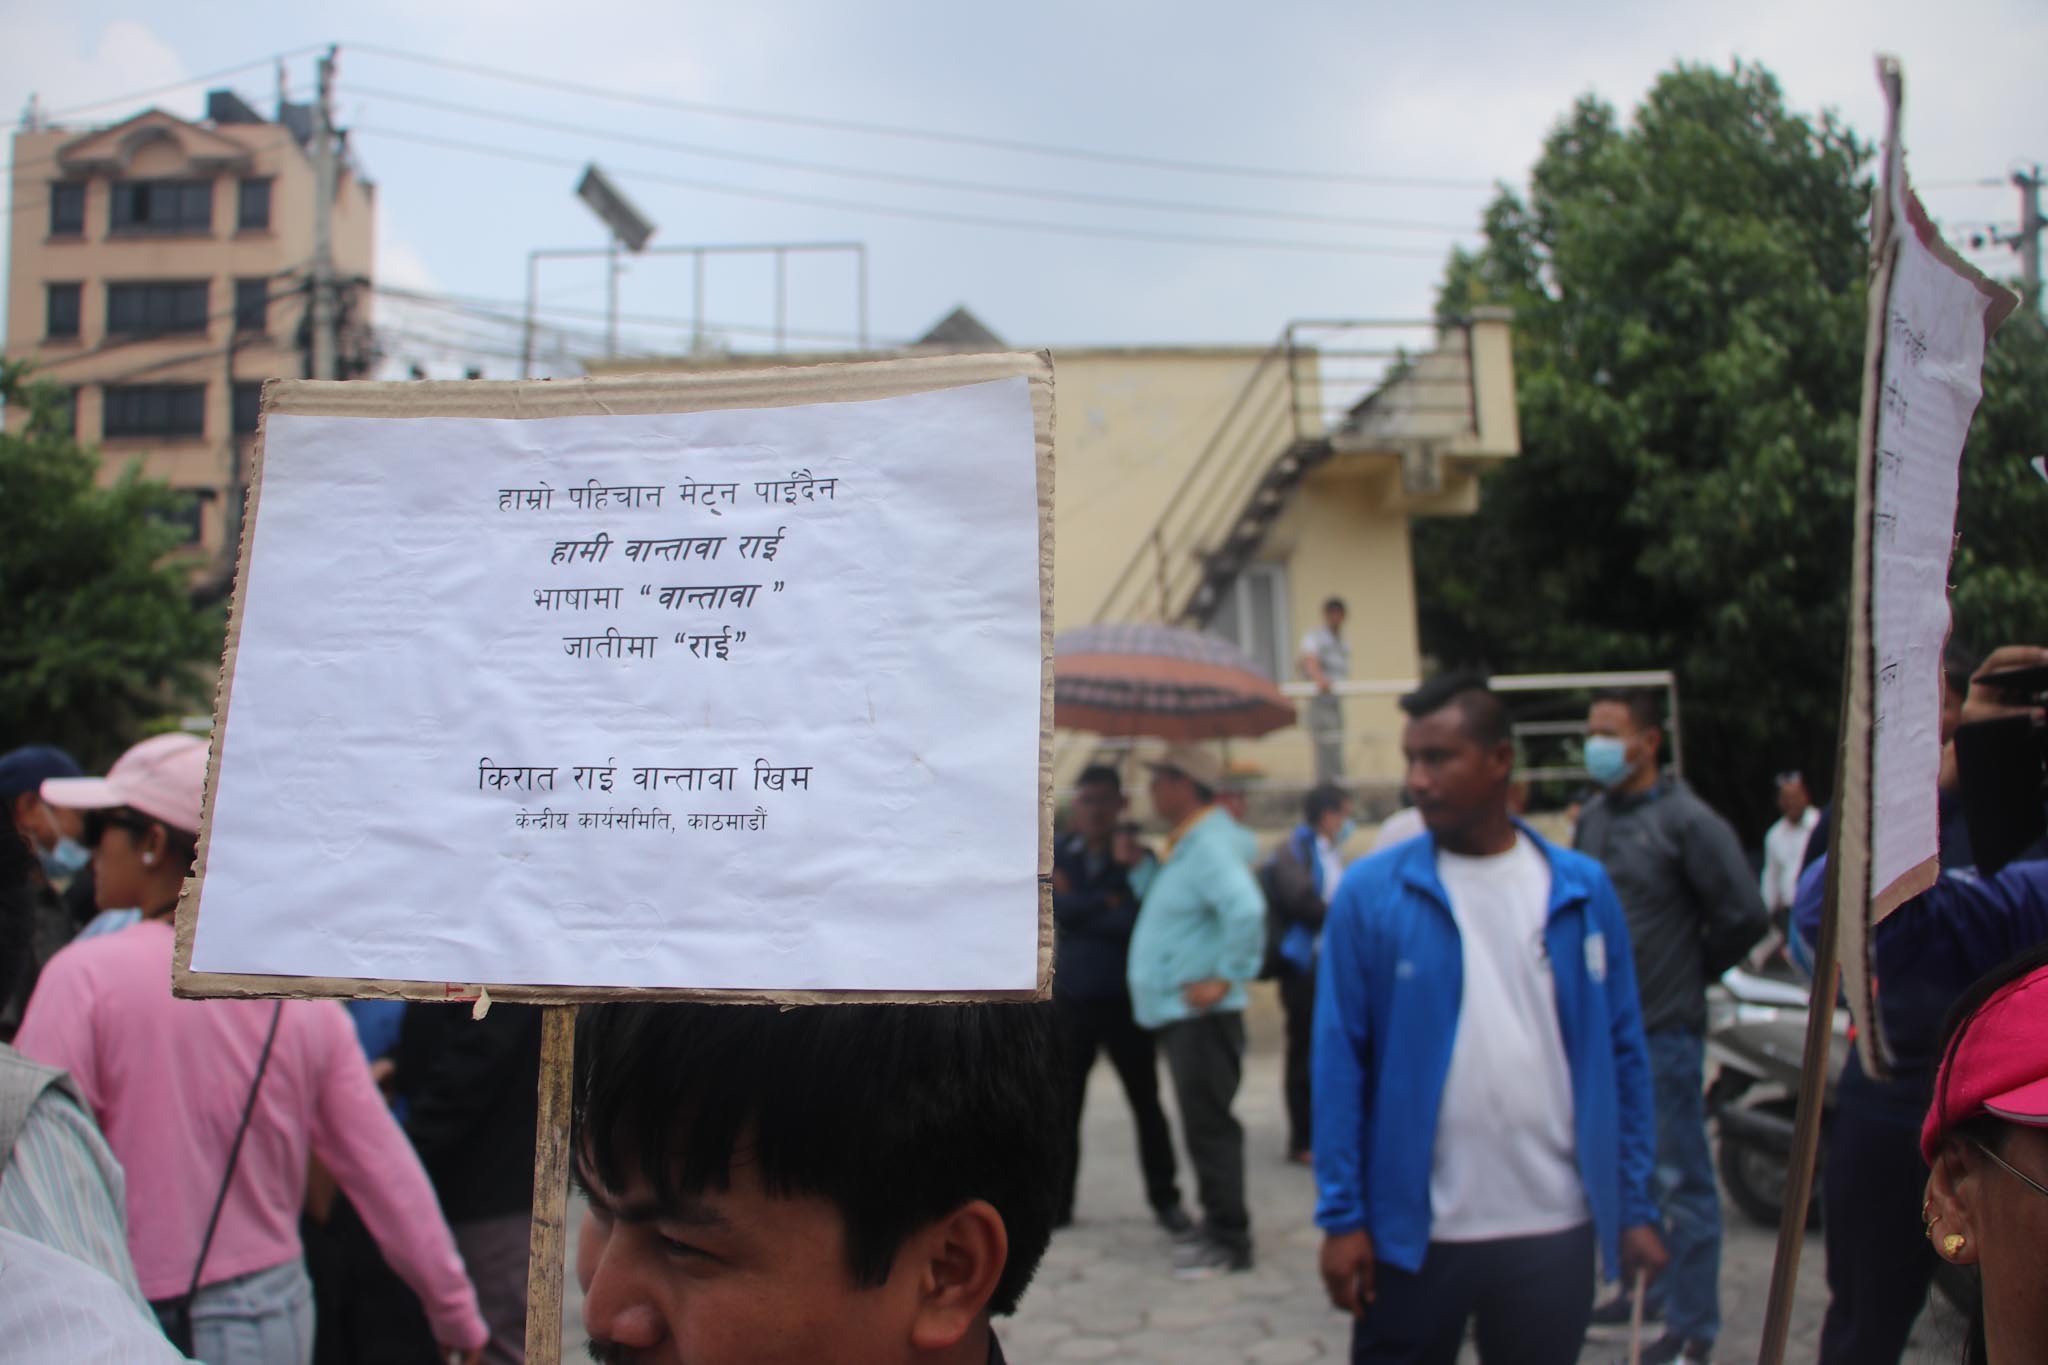 हाम्रो पहिचान मेट्‌न पाईँदैन
हामी वान्तावा राई
भाषामा “ वान्तावा ”
जातीमा “राई”
किरात राई वान्तावा खिम
केन्द्रीय कार्यसमिति, काठमाडौं